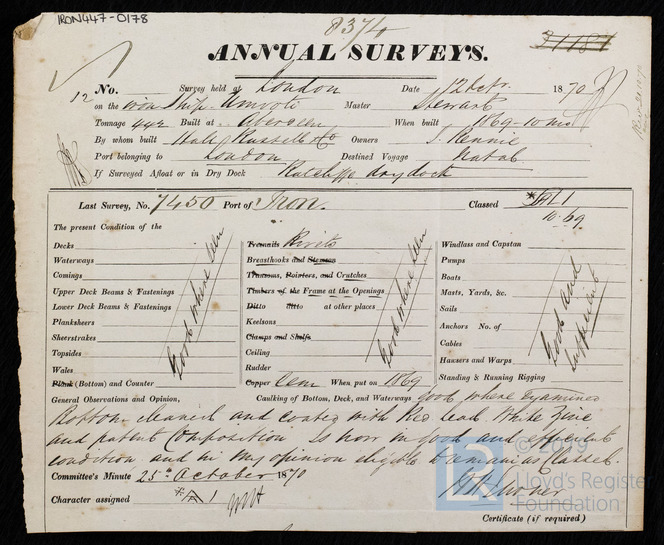 IRON447-0178
8374
21187
ANNUAL SURVEYS.
12 No. Survey held at London Date 12 Octr. 1870
on the iron Ship Umvoti Master Stewart
Tonnage 442 Built at Aberdeen When built 1869-10 mo.
By whom built Hall Russell & Co Owners J. Rennie
Port belonging to London Destined Voyage Natal
If Surveyed Afloat or in Dry Dock Ratcliffe dry dock
Last Survey, No. 7450 Port of Iron. Classed
10.69
The present Condition of the
Decks
Waterways
Comings
Upper Deck Beams & Fastenings
Lower Deck Beams & Fastenings
Planksheers
Sheerstrakes
Topsides
Wales
Plank (Bottom) and Counter
Good where seen
Treenails Rivets
Breasthooks and Stemson
Transoms, Pointers, and Crutches
Timbers of the Frame at the Openings
Ditto ditto at other places
Keelsons
Clamps and Shelfs
Ceiling
Rudder
Copper Cem When put on 1869
Good where seen
Windlass and Capstan
Pumps
Boats
Masts, Yards, &c.
Sails
Anchors No. of
Cables
Hausers and Warps
Standing & Running Rigging
Good and sufficient
General Observations and Opinion, Caulking of Bottom, Deck, and Waterways Good where examined
Bottom cleaned and coated with Red Lead White Zinc
and patent Composition Is now in good and efficient
condition and in my opinion eligible to remain as Classed.
Committee's Minute 25th October 1870
Character assigned A 1
Certificate (if required)
© 2019
Lloyd's Register
Foundation